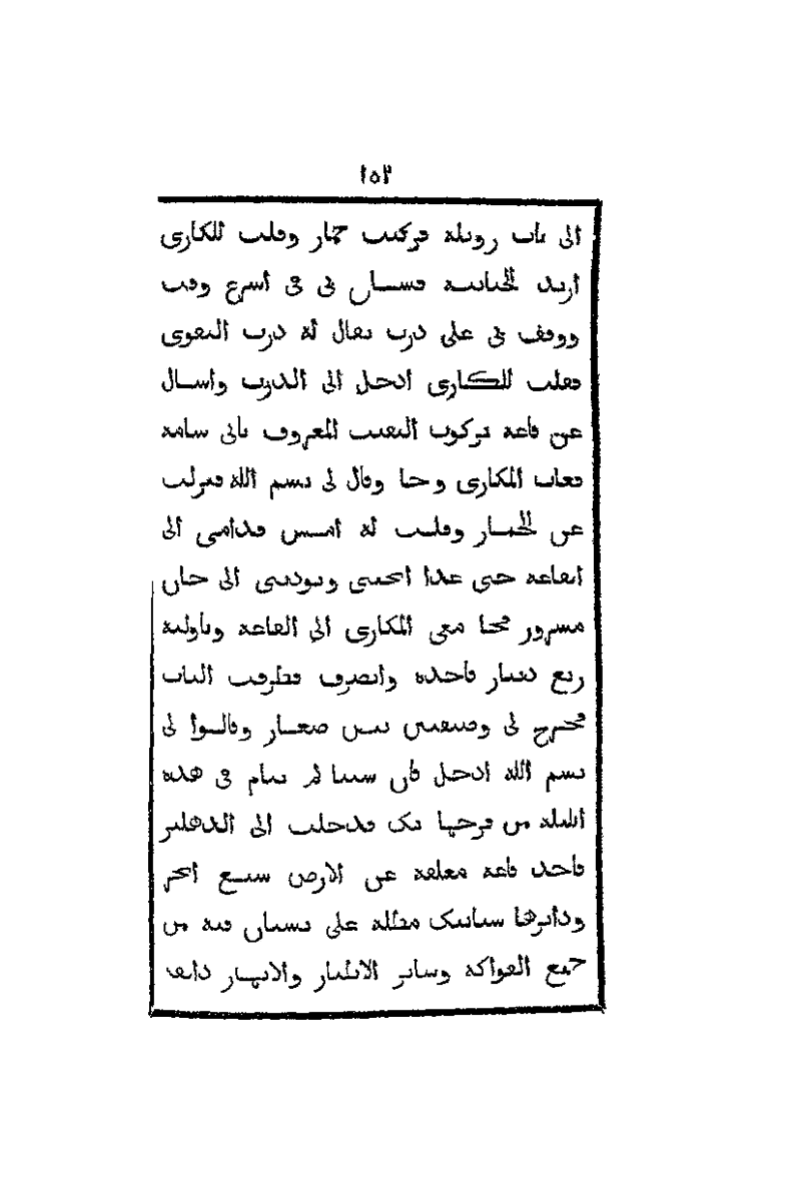 ١٥٢
الى باب زويلة فركبت حمار وقلت للمكارى
اريد الحبانية فسار بى فى اسرع وقت
ووقف بى على درب يقال له درب التقوى
فقلت للمكارى ادخل الى الدرب واسال
عن قاعة بركوت النقيب المعروف بابى شامة
فغاب المكارى وجا وقال لى بسم الله فنزلت
عن الحمار وقلت له امش قدامى الى
القاعة حتى غدا تجينى وتودينى الى خان
مسرور فجا معى المكارى الى القاعة وناولته
ربع دينار فاخذه وانصرف فطرقت الباب
فخرج لى وصيفتين بيض صغار وقالوا لى
بسم الله ادخل فان ستنا لم تنام فى هذه
الليلة من فرحها بك فدخلت الى الدهليز
فاجد قاعة معلقة عن الارض سبع ابحر
ودايرها شبابيك مطلة على بستان فيه من
جميع الفواكه وساير الاثمار والانهار دايقة